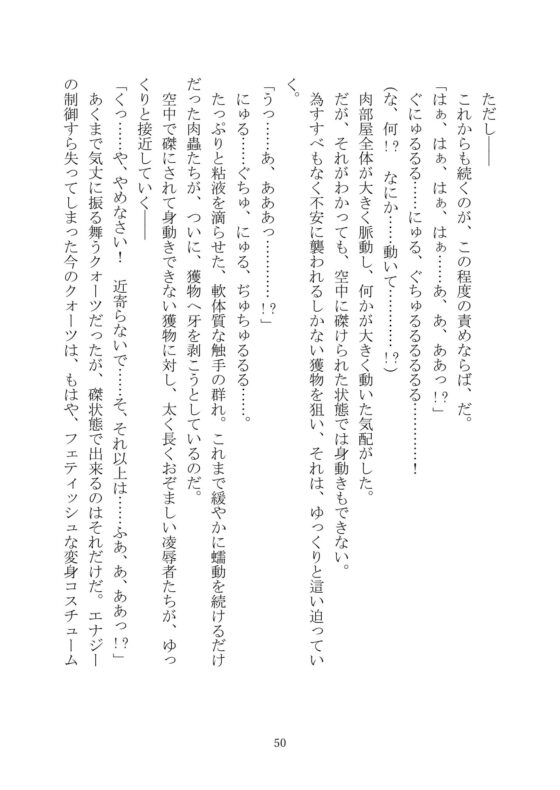 ただし――
これからも続くのが、この程度の責めならば、だ。
「はぁ、はぁ、はぁ、はぁ……あ、あ、ああっ!?」
ぐにゅるるる……にゅる、ぐちゅるるるるるる…………!
(な、何!?　なにか……動いて…………!?)
肉部屋全体が大きく脈動し、何かが大きく動いた気配がした。
だが、それがわかっても、空中に磔けられた状態では身動きもできない。
為すすべもなく不安に襲われるしかない獲物を狙い、それは、ゆっくりと這い迫ってい
く。
「うっ……あ、あああっ…………!?」
にゅる……ぐちゅ、にゅる、ぢゅちゅるるる……。
たっぷりと粘液を滴らせた、軟体質な触手の群れ。これまで緩やかに蠕動を続けるだけ
だった肉蟲たちが、ついに、獲物へ牙を剥こうとしているのだ。
空中で磔にされて身動きできない獲物に対し、太く長くおぞましい凌辱者たちが、ゆっ
くりと接近していく――
「くっ……や、やめなさい!　近寄らないで……そ、それ以上は……ふあ、あ、ああっ!?」
あくまで気丈に振る舞うクォーツだったが、磔状態で出来るのはそれだけだ。エナジー
の制御すら失ってしまった今のクォーツは、もはや、フェティッシュな変身コスチューム
50